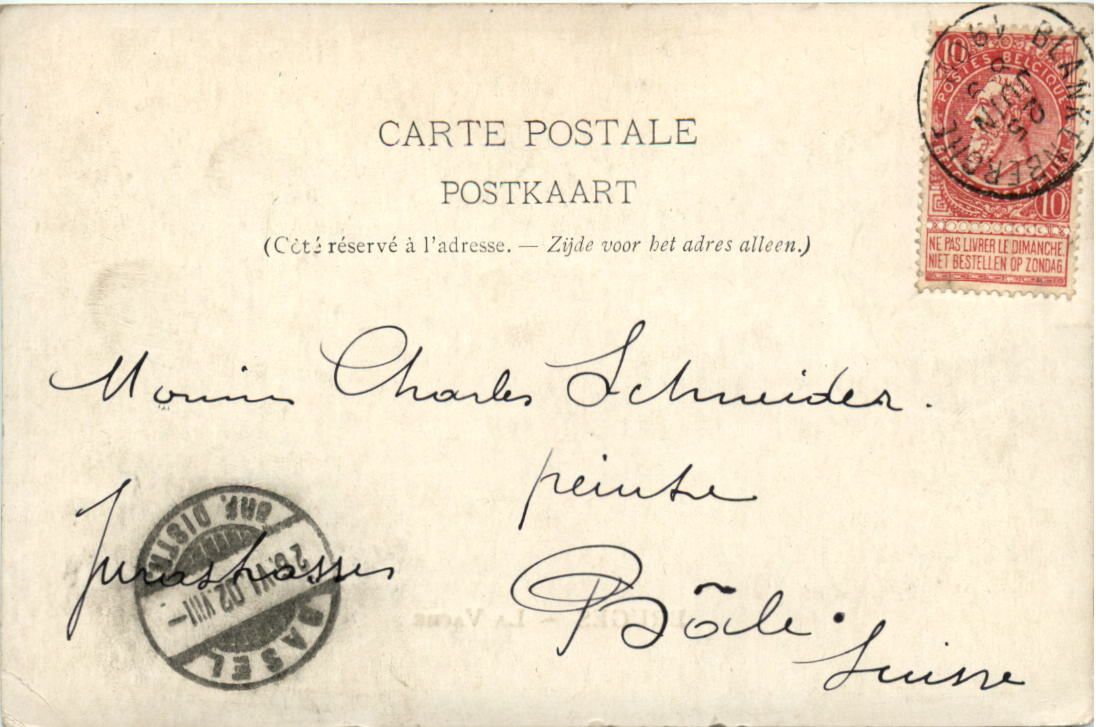 CARTE POSTALE
POSTKAART
(Côté réservé à l'adresse. — Zijde voor het adres alleen.)
10 10
POSTES BELGIQUE
10
NE PAS LIVRER LE DIMANCHE
NIET BESTELLEN OP ZONDAG
BLANKENBERGHE
JUIN
Charles Schneider.
peintre
Jurastrasse
Bâle.
Suisse
BRF. DISTR.
VI.02.VIII—
BASEL
BRUGES — LA VACHE